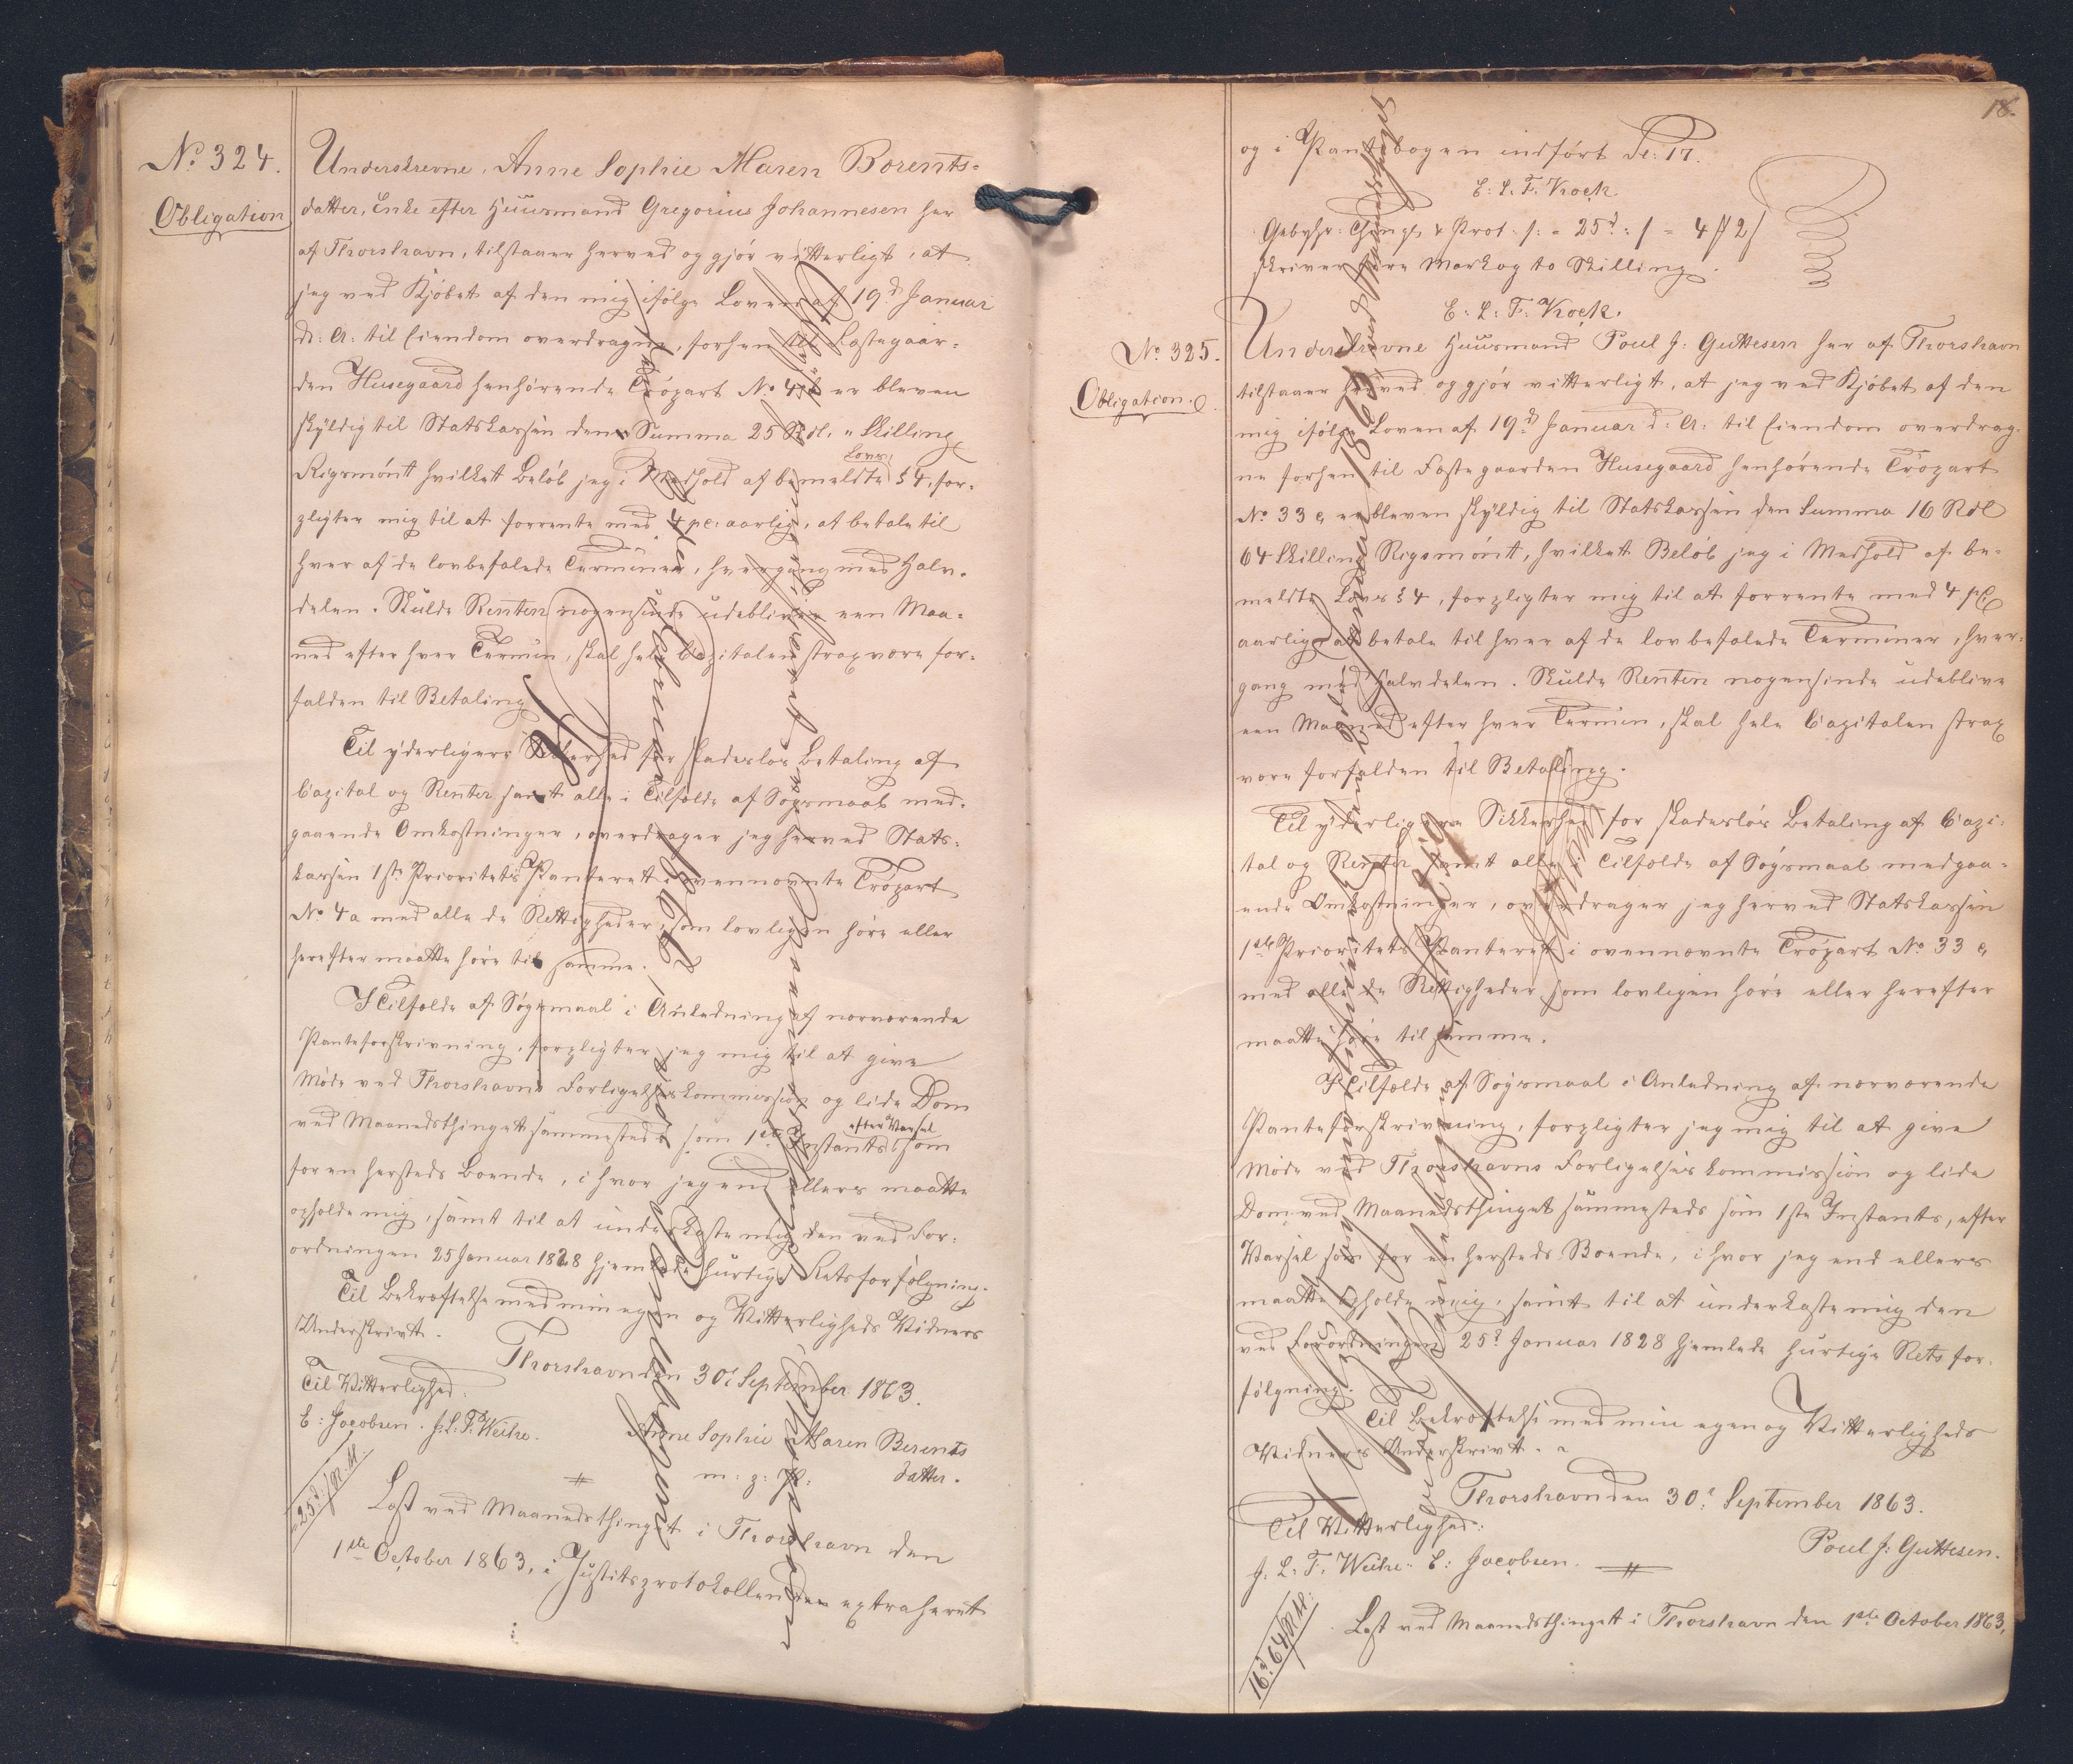 No 324.
Obligation
Underskrevne, Anne Sophie Maren Berents-
datter, Enke efter Huusmand Gregorius Johannesen her
af Thorshavn, tilstaaer herved og gjör vitterligt, at
jeg ved Kjöbet af den mig ifölge Loven af 19d Januar
d: A: til Eiendom overdragne, forhen til Fæstegaar-
den Husegaard henhörende Tröpart No 4a er bleven
skyldig til Statskassen den Summa 25 Rdl. " Skilling
Rigsmönt hvilket Belöb jeg i Medhold af bemeldte Lovs § 4, for-
pligter mig til at forrente med 4 pC: aarlig, at betale til
hver af de lovbefalede Terminer, hvergang med Halv-
delen. Skulde Renten nogensinde udeblive een Maa-
ned efter hver Termin, skal hele Capitalen strax være for-
falden til Betaling.
Til yderligere Sikkerhed for skadeslös Betaling af
Capital og Renter samt alle i Tilfælde af Sögsmaal med-
gaaende Omkostninger, overdrager jeg herved Stats-
kassen 1ste Prioritets Panteret i ovennævnte Tröpart
No 4a med alle de Rettigheder, som lovligen höre eller
herefter maatte höre til samme.
I Tilfælde af Sögsmaal i Anledning af nærværende
Panteforskrivning, forpligter jeg mig til at give
Möde ved Thorshavns Forligelseskommission og lide Dom
ved Maanedsthinget sammesteds som 1ste Instants efter Varsel som
for en hersteds Boende, i hvor jeg end ellers maatte
opholde mig, samt til at underkaste mig den ved For-
ordningen 25 Januar 1828 hjemlede hurtige Retsforfölgning.
Til Bekræftelse med min egen og Vitterligheds Vidners
Underskrivt.
Thorshavn den 30d September 1863.
Til Vitterlighed:
E: Jacobsen. J. L. F. Weihe.
Anne Sophie Maren Berents
datter.
m: p: P:
25d. / R. M.
Læst ved Maanedsthinget i Thorshavn den
1ste October 1863, i Justitsprotokollen den extraheret
18.
og i Pantebogen indfört Fol: 17.
E: L: F: Kock.
Gebyhr: Thingl. & Prot. /: - 25d : / - 4 # 2 /
skriver fire Mark og to Skilling.
E: L: F: Kock.
No 325.
Obligation.
Underskrevne Huusmand Poul J: Guttesen her af Thorshavn
tilstaaer herved og gjör vitterligt, at jeg ved Kjöbet af den
mig ifölge Loven af 19d Januar d: A: til Eiendom overdrag-
ne forhen til Fæstegaarden Husegaard henhörende Tröpart
No 33 e, er bleven skyldig til Statskassen den Summa 16 Rdl
64 Skilling Rigsmönt, hvilket Belöb jeg i Medhold af be-
meldte Lovs § 4, forpligter mig til at forrente med 4 pC:
aarlig at betale til hver af de lovbefalede Terminer, hver-
gang med Halvdelen. Skulde Renten nogensinde udeblive
een Maaned efter hver Termin, skal hele Capitalen strax
være forfalden til Betaling.
Til yderligere Sikkerhed for skadeslös Betaling af Capi-
tal og Renter samt alle i Tilfælde af Sögsmaal medgaa-
ende Omkostninger, overdrager jeg herved Statskassen
1ste Prioritets Panteret i ovennævnte Tröpart No 33 e,
med alle de Rettigheder som lovligen höre eller herefter
maatte höre til samme.
I Tilfælde af Sögsmaal i Anledning af nærværende
Panteforskrivning, forpligter jeg mig til at give
Möde ved Thorshavns Forligelseskommission og lide
Dom ved Maanedsthinget sammesteds som 1ste Instants, efter
Varsel som for en hersteds Boende, i hvor jeg end ellers
maatte opholde mig, samt til at underkaste mig den
ved Forordningen 25d Januar 1828 hjemlede hurtige Retsfor-
fölgning.
Til Bekræftelse med min egen og Vitterligheds
Vidners Underskrivt.
Thorshavn den 30d September 1863.
Til Vitterlighed:
Poul J: Guttesen.
J. L. F. Weihe. E: Jacobsen.
16d. 64/ R. M:
Læst ved Maanedsthinget i Thorshavn den 1ste October 1863,